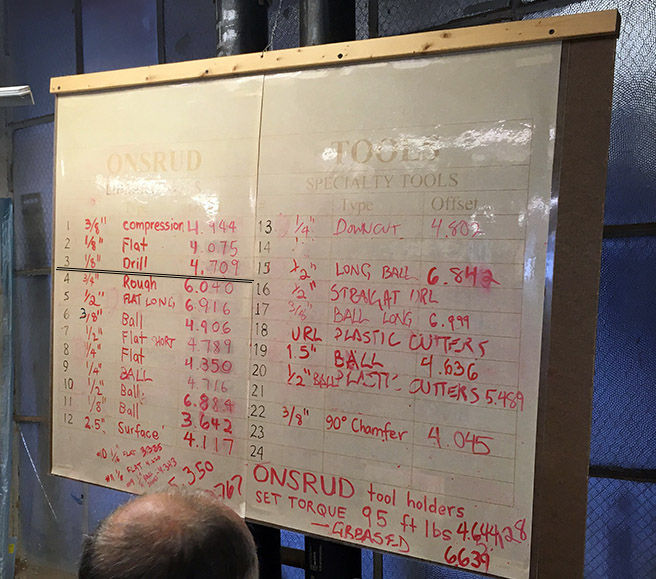 ONSRUD
TOOLS
SPECIALTY TOOLS
Type Offset
1 3/8" compression 4.944
2 1/8" Flat 4.075
3 1/8" Drill 4.709
4 3/4" Rough 6.040
5 1/2" FLAT LONG 6.916
6 3/8" Ball 4.906
7 1/2" Flat 4.789
8 1/4" Flat 4.350
9 1/4" BALL 4.716
10 1/2" Ball 6.884
11 1/8" Ball 3.642
12 2.5" Surface 4.117
13 1/4" DOWNCUT
14
15 1/2" LONG BALL 6.842
16 1/2" STRAIGHT
17 3/8" BALL LONG 6.999
18 URL PLASTIC CUTTERS
19 1.5" BALL 4.636
20 1/2" BALL CUTTERS 5.489
21
22 3/8" 90° Chamfer 4.045
23
24
FLAT
FLAT
.350
ONSRUD tool holders
SET TORQUE 95 ft lbs
GREASED